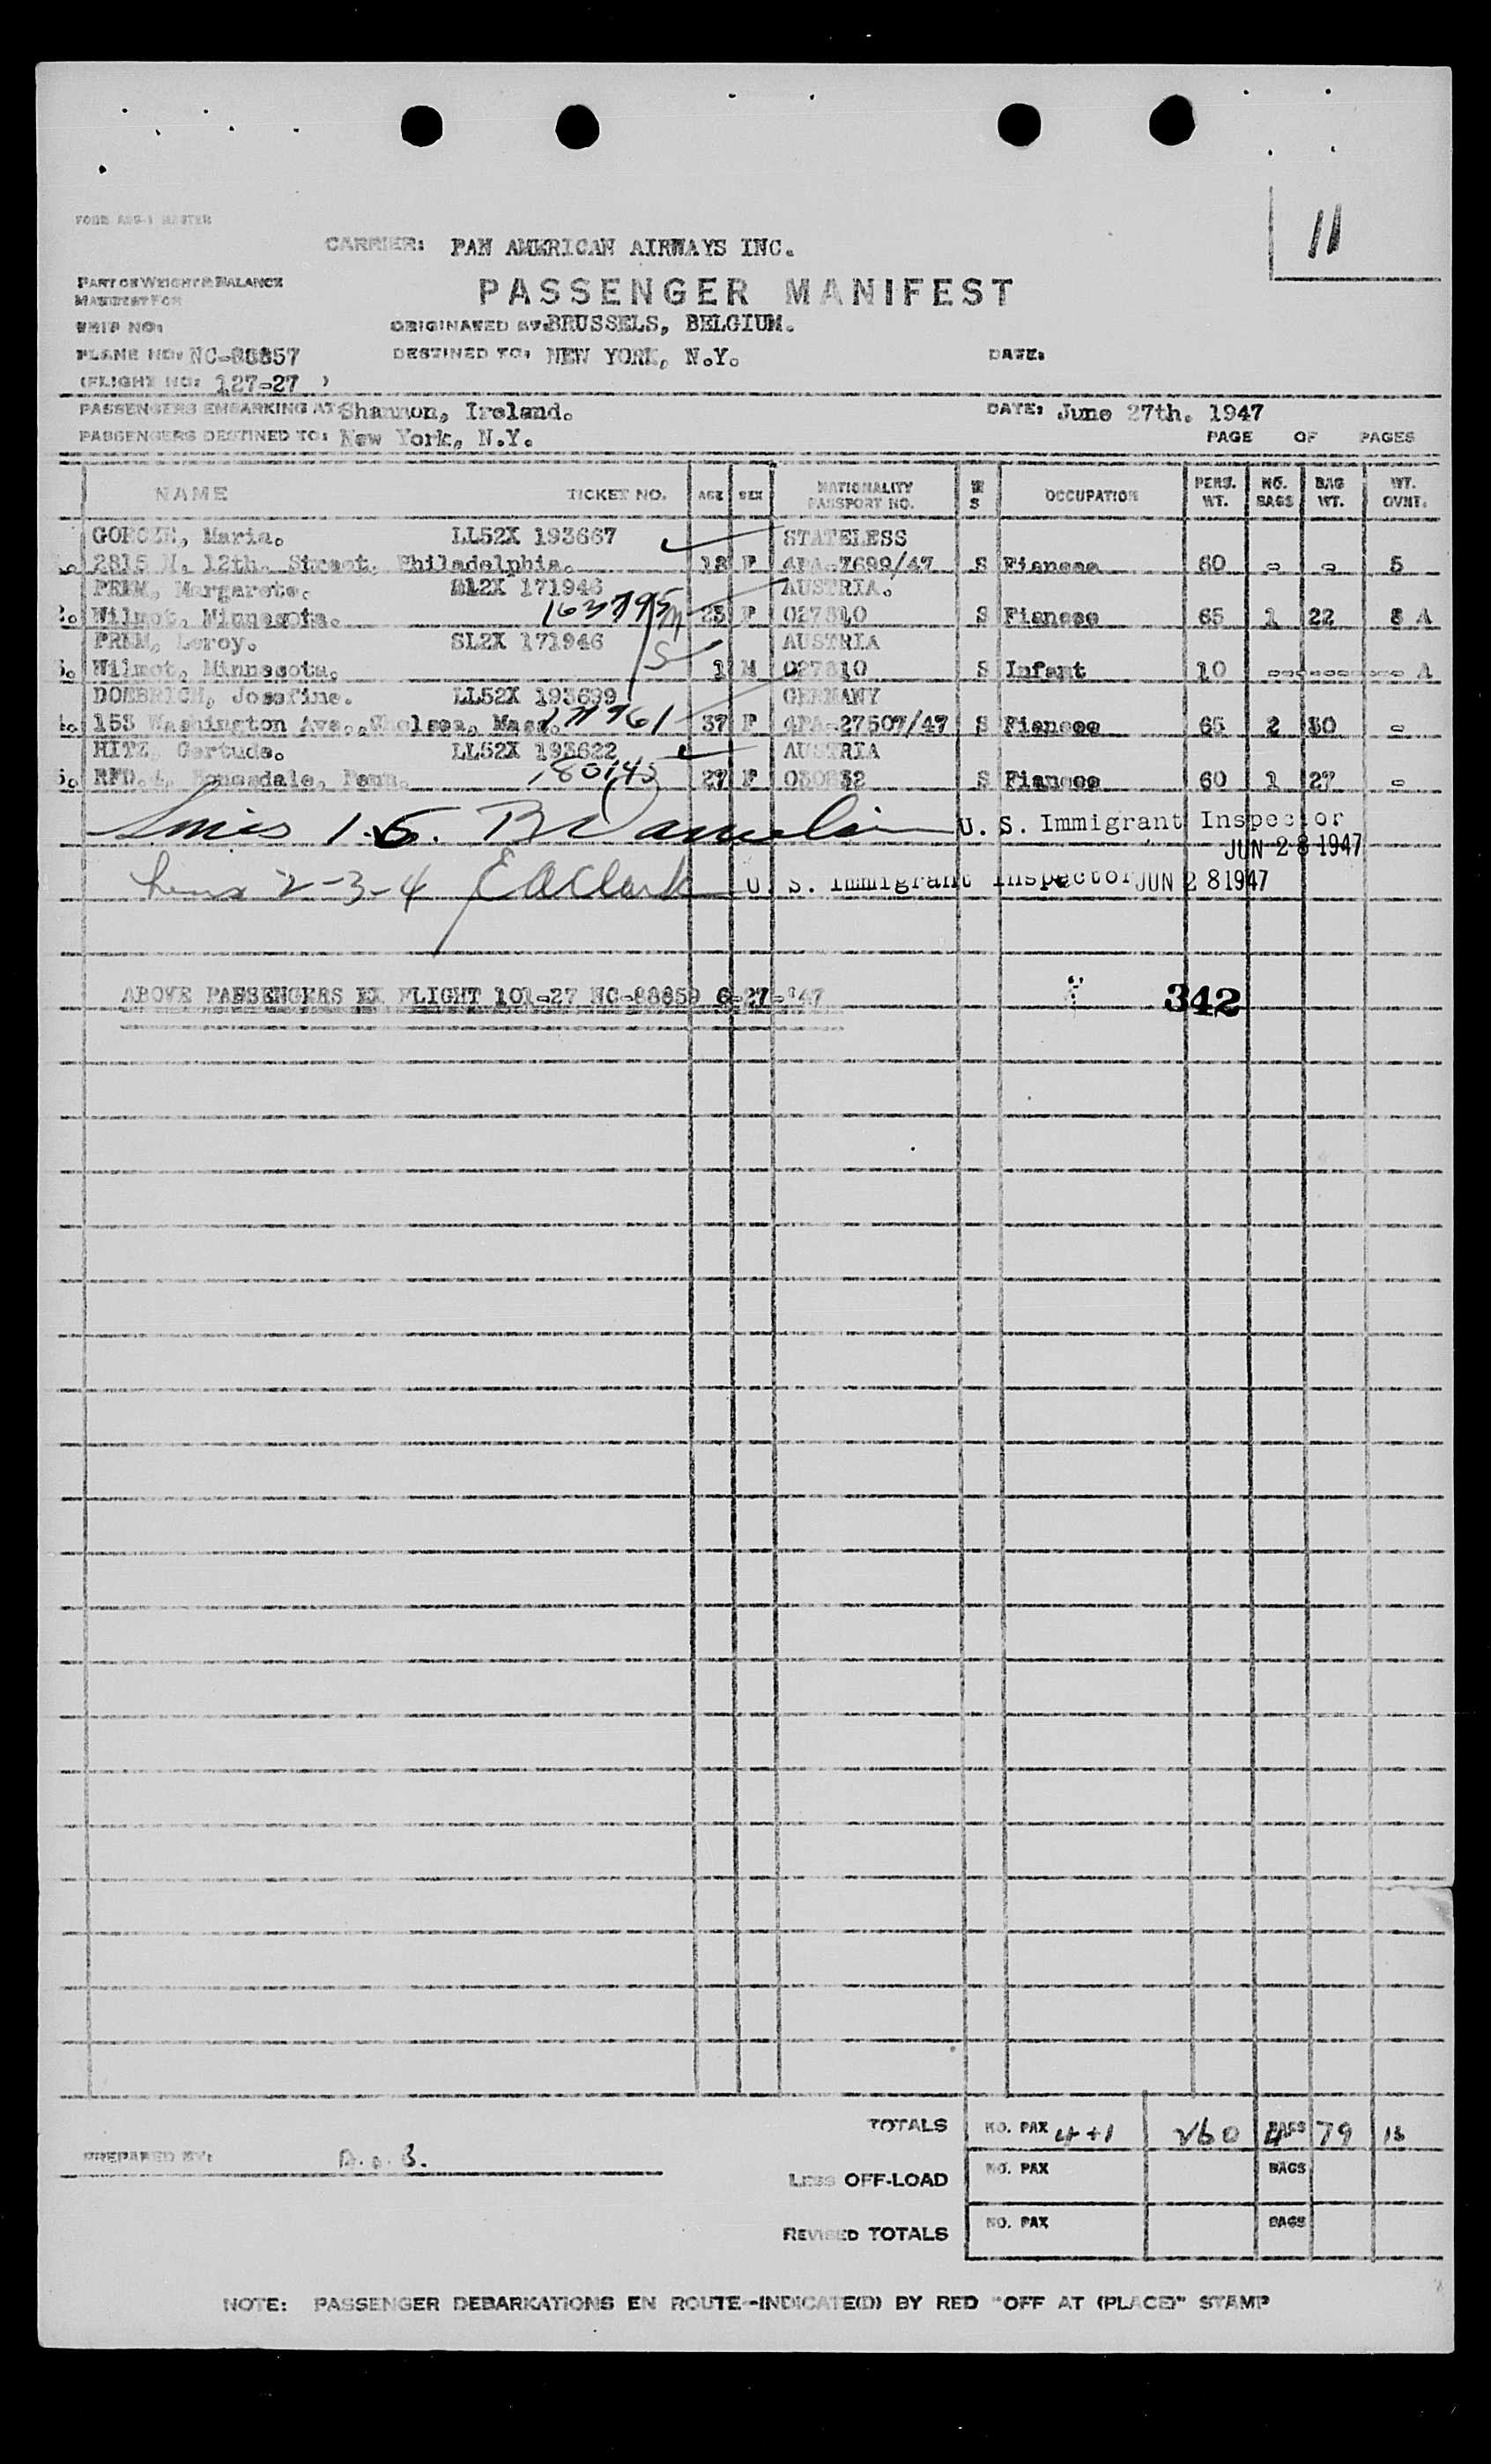 11
FORM ADS-1 MASTER
CARRIER: PAN AMERICAN AIRWAYS INC.
PART OF WEIGHT & BALANCE
MANIFEST FOR
PASSENGER MANIFEST
SHIP NO:
ORIGINATED AT: BRUSSELS, BELGIUM.
PLANE NO: NC-88857
DESTINED TO: NEW YORK, N.Y.
DATE:
(FLIGHT NO: 127-27 )
PASSENGERS EMBARKING AT Shannon, Ireland.
DATE: June 27th. 1947
PASSENGERS DESTINED TO: New York, N.Y.
PAGE OF PAGES
NAME TICKET NO. AGE SEX NATIONALITY PASSPORT NO. M S OCCUPATION PERS. WT. NO. BAGS BAG WT. WT. OVNT.
Maria. LL52X 193667 STATELESS
2815 N. 12th. Street, Philadelphia. 18 F 4PA-7699/47 S Fiancee 60 - - 5
PREM, Margarete. SL2X 171946 AUSTRIA.
2. Wilmot, Minnesota. 163795 M 25 F 027310 S Fiancee 65 1 22 8 A
PREM, Leroy. SL2X 171946 S AUSTRIA
3. Wilmot, Minnesota. 1 M 027310 S Infant 10 ---------- A
DOMBRICH, Josefine. LL52X 193699 GERMANY
4. 153 Washington Ave., Chelsea, Mass. 37 F 4PA-27507/47 S Fiancee 65 2 30 -
HITZ, Gertude. LL52X 193622 AUSTRIA
5. RFD. Honesdale, Penn. 180145 27 F S Fiancee 60 1 27 -
Lines 1.5. U. S. Immigrant Inspector
JUN 28 1947
Lines 2-3-4 E A Clark U. S. Immigrant Inspector JUN 28 1947
ABOVE PASSENGERS EX FLIGHT 101-27 NC-88859 6-27-'47 342
TOTALS NO. PAX 4+1 260 BAGS 4 79 18
PREPARED BY: A.. B.
LESS OFF-LOAD NO. PAX BAGS
REVISED TOTALS NO. PAX BAGS
NOTE: PASSENGER DEBARKATIONS EN ROUTE-INDICATE(D) BY RED "OFF AT (PLACE)" STAMP